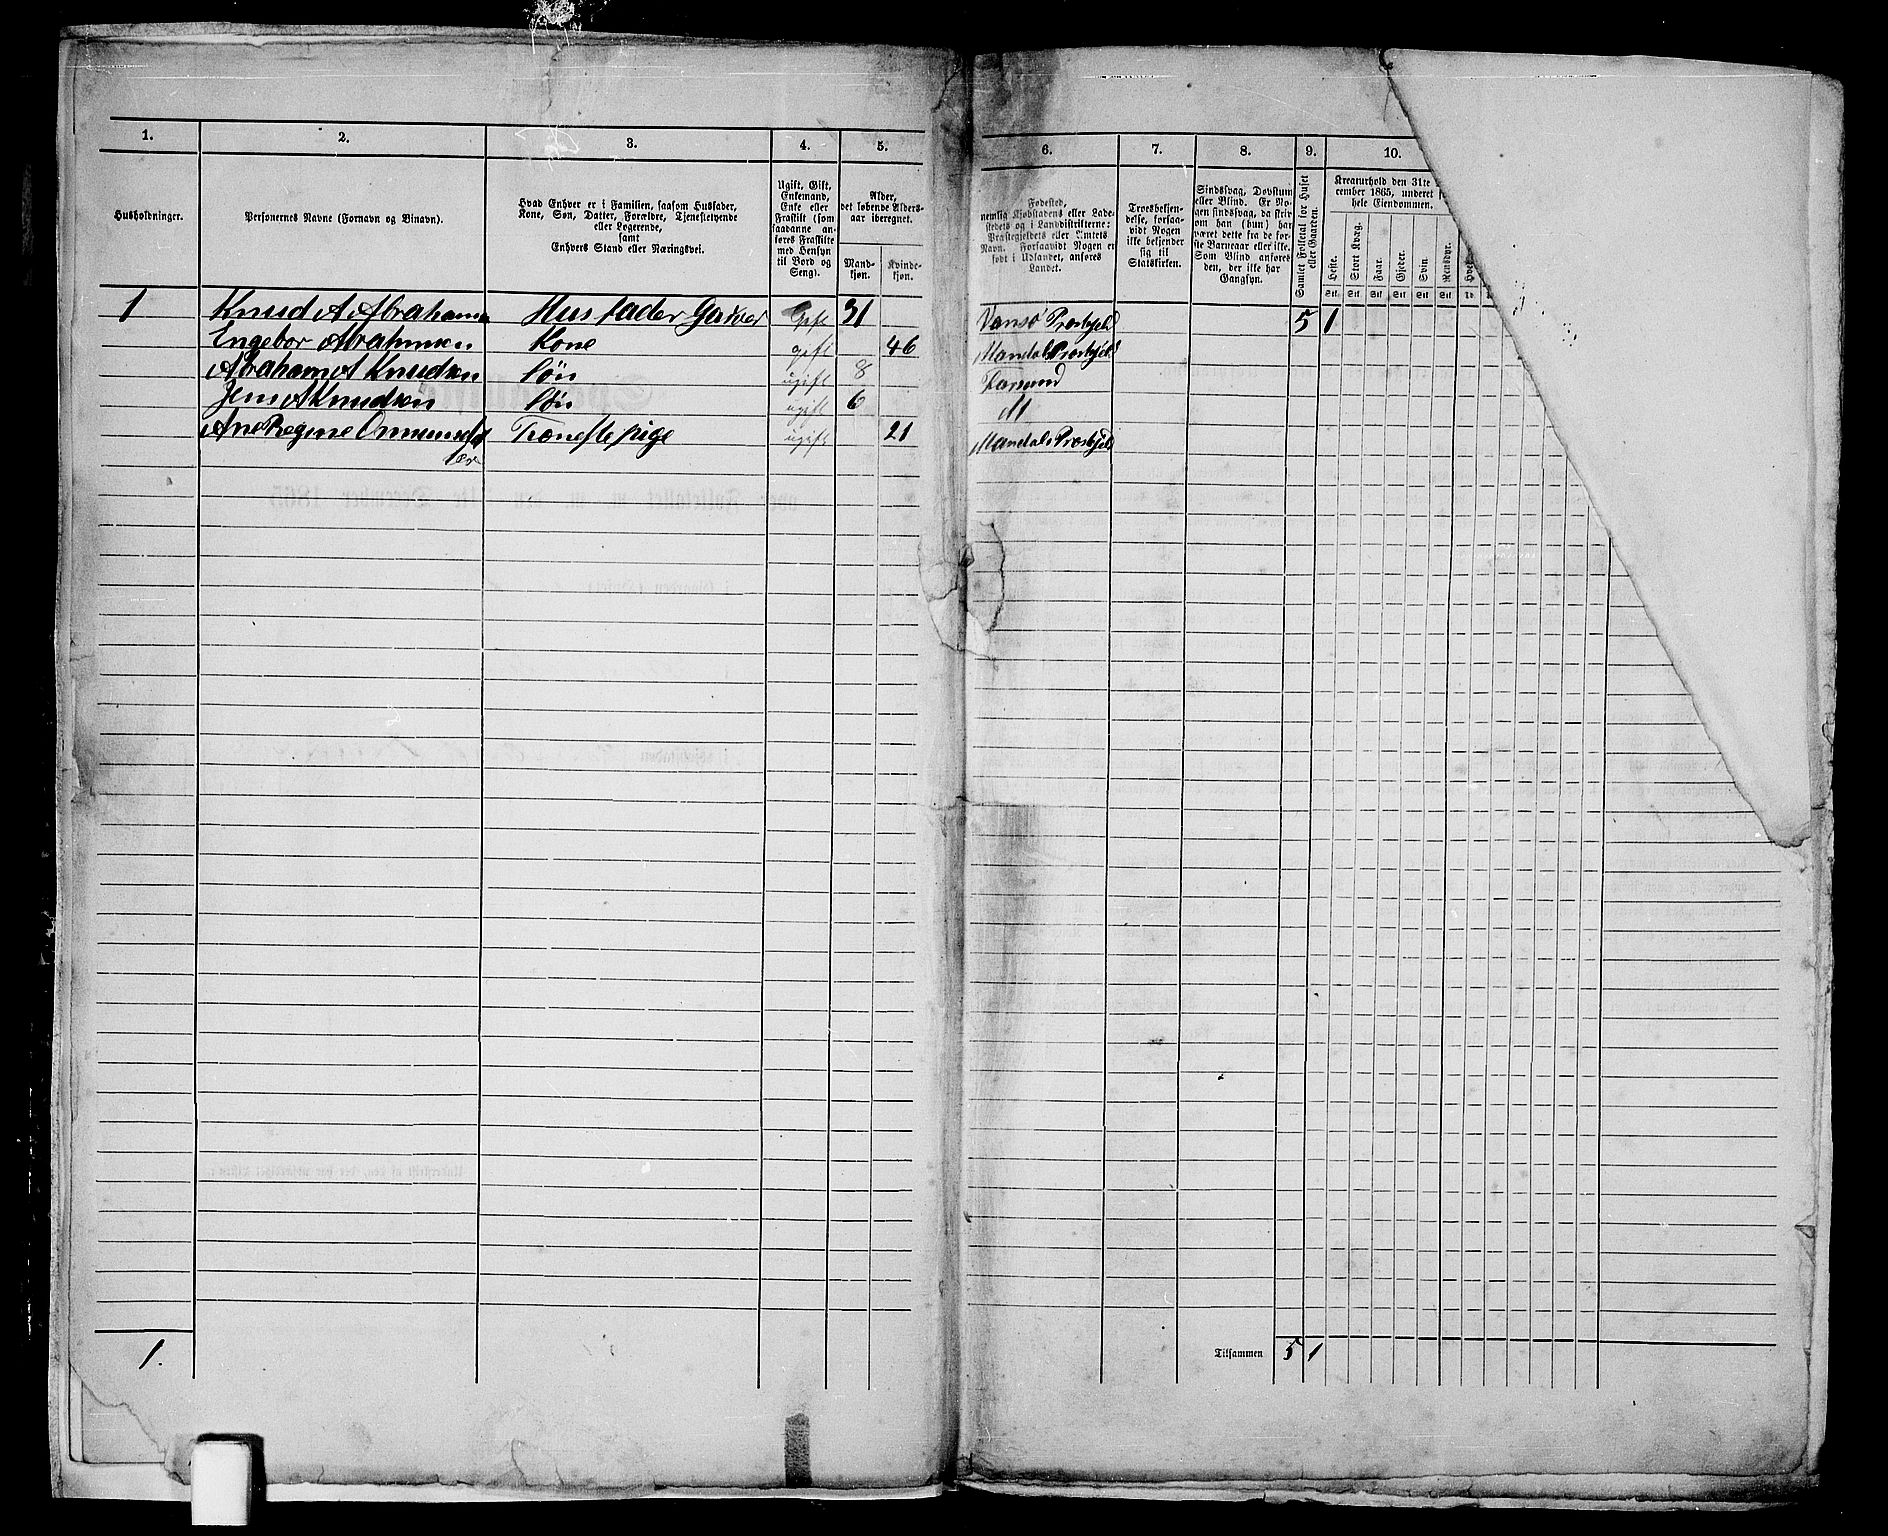 1.
2.
3.
4.
5.
Husholdninger.
Personernes Navne (Fornavn og Binavn).
Hvad Enhver er i Familien, saasom Husfader,
Kone, Søn, Datter, Forældre, Tjenestetyende
eller Logerende,
samt
Enhvers Stand eller Næringsvei.
Ugift, Gift,
Enkemand,
Enke eller
Fraskilt (som
saadanne an-
føres Fraskilte
med Hensyn
til Bord og
Seng).
Alder,
det løbende Alders-
aar iberegnet.
Mand-
kjøn.
Kvinde-
kjøn.
1 Knud A Abrahamsen Husfader Garver Gift 31
Engebor Abrahmsen Kone gift 46
Abraham A Knudsen Søn ugift 8
Jens A Knudsen Søn ugift 6
Ane Regine Tjeneste pige ugift 21
1.
6.
7.
8.
9.
10.
Fødested,
nemlig Kjøbstadens eller Lade-
stedets og i Landdistrikterne:
Præstegjeldets eller Amtets
Navn. Forsaavidt Nogen er
født i Udlandet, anføres
Landet.
Troesbekjen-
delse, forsaa-
vidt Nogen
ikke bekjender
sig til
Statskirken.
Sindssvag, Døvstum
eller Blind. Er No-
gen sindssvag, da skriv
om han (hun) har
været dette fra de før-
ste Barneaar eller ikke.
Som Blind anføres
den, der ikke har
Gangsyn.
Samlet Folketal for Huset
eller Gaarden.
Kreaturhold den 31te
cember 1865, underet
hele Eiendommen.
Heste.
Stort Kvæg.
Faar.
Gjeder.
Svin.
Rensdyr.
Stk. Stk. Stk. Stk. Stk. Stk. Td.
Vansø Præstgjeld 5 1
Mandals Præstgjeld
Farsund
Mandals Præstgjeld
Tilsammen 5 1